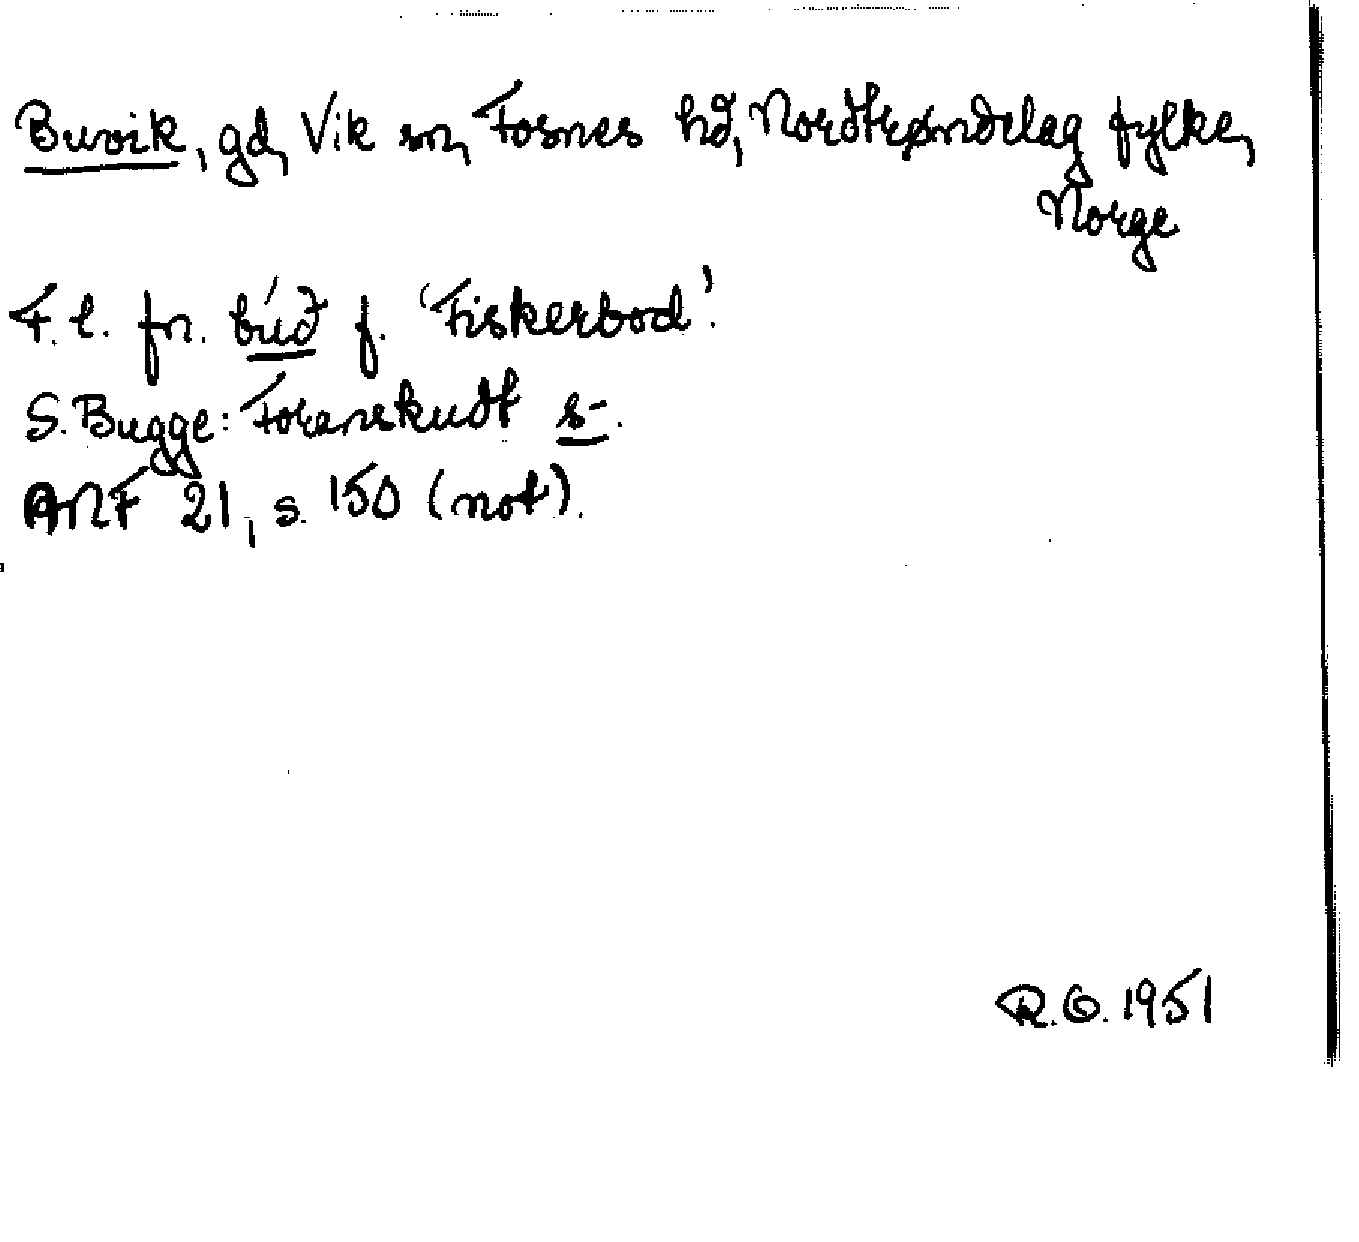 Buvik, gd, Vik sn, Fosnes hd, Nordtrøndelag fylke,
Norge
F.l. fn. búð f. 'Fiskerbod'.
S. Bugge: Foranskudt s-.
ANF 21, s. 150 (not).
R.O. 1951